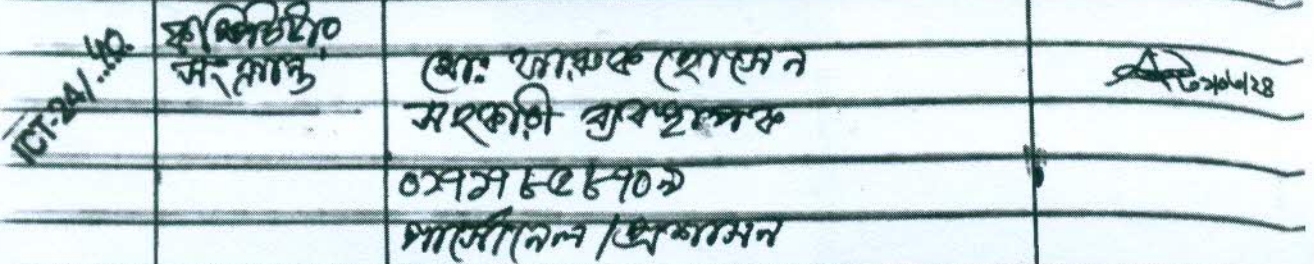 ICT-24/...40.
কম্পিউটার
সংক্রান্ত
মোঃ ফারুক হোসেন
সহকারী ব্যবস্থাপক
০১৭১৭৮৫৮৭০৯
পার্সোনেল / প্রশাসন